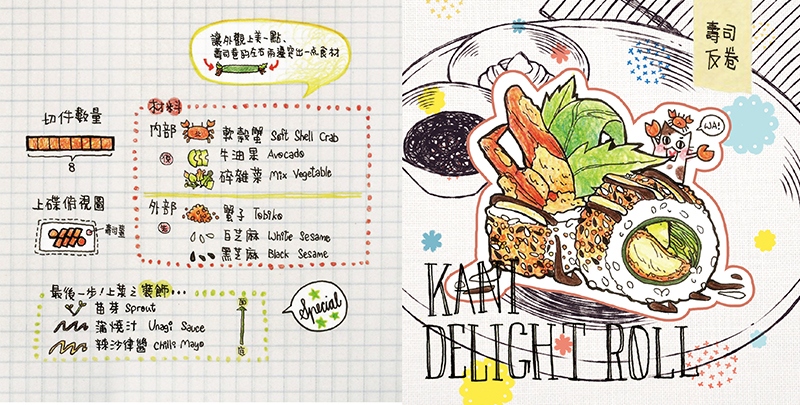 讓外觀上美一點、
壽司卷的左右兩邊突出一点食材
材料
切件數量
8
內部
軟殼蟹 Soft Shell Crab
牛油果 Avocado
碎雜菜 Mix Vegetable
上碟俯視圖
壽司薑
外部
蟹子 Tobiko
白芝麻 White Sesame
黑芝麻 Black Sesame
最後一步!上菜之裝飾...
苗芽 Sprout
蒲燒汁 Unagi Sauce
辣沙律醬 Chilli Mayo
面
底
Special
壽司
反卷
WA!
KANI
DELIGHT ROLL